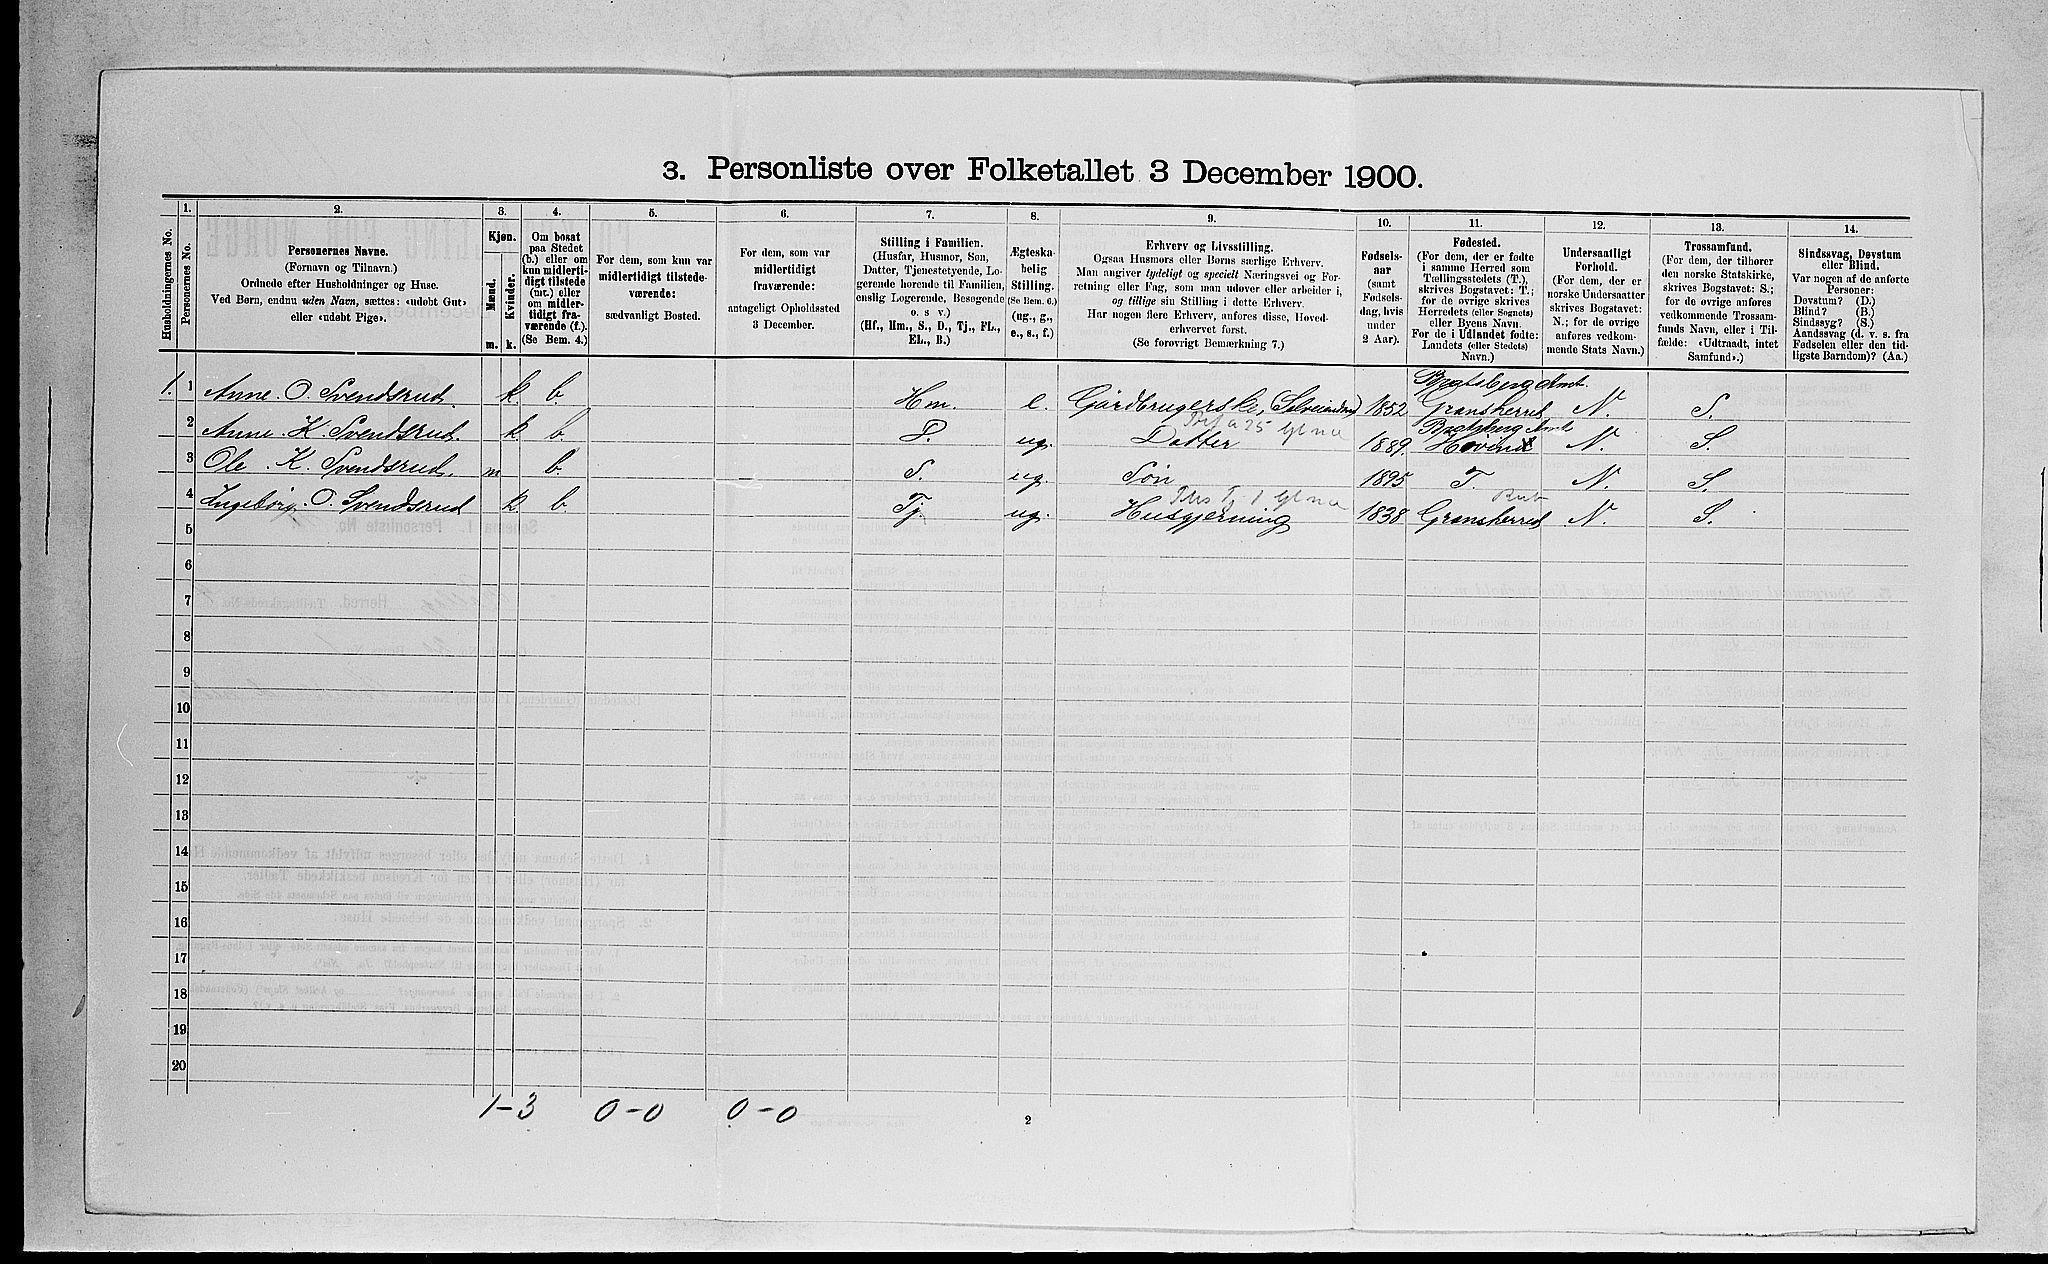 3. Personliste over Folketallet 3 December 1900.
1. 2. 3. 4. 5. 6. 7. 8. 9. 10. 11. 12. 13. 14.
Husholdningernes No.
Personernes No.
Personernes Navne.
(Fornavn og Tilnavn.)
Ordnede efter Husholdninger og Huse.
Ved Børn, endnu uden Navn, sættes: «udøbt Gut»
eller «udøbt Pige».
Kjøn.
Mænd.
Kvinder.
m. k.
Om bosat
paa Stedet
(b.) eller om
kun midlerti-
digt tilstede
(mt.) eller
om midler-
tidigt fra-
værende (f.).
(Se Bem. 4.)
For dem, som kun var
midlertidigt tilstede-
værende:
sædvanligt Bosted.
For dem, som var
midlertidigt
fraværende:
antageligt Opholdssted
3 December.
Stilling i Familien.
(Husfar, Husmor, Søn,
Datter, Tjenestetyende, Lo-
gerende hørende til Familien,
enslig Logerende, Besøgende
o. s v.)
(Hf., Hm., S., D., Tj., FL.,
EL., B.)
Ægteska-
belig
Stilling.
(Se Bem. 6.)
(ug., g.,
e., s., f.)
Erhverv og Livsstilling.
Ogsaa Husmors eller Børns særlige Erhverv.
Man angiver tydeligt og specielt Næringsvei og For-
retning eller Fag, som man udøver eller arbeider i,
og tillige sin Stilling i dette Erhverv.
Har nogen flere Erhverv, anføres disse, Hoved-
erhvervet først.
(Se forøvrigt Bemærkning 7.)
Fødsels-
aar
(samt
Fødsels-
dag, hvis
under
2 Aar).
Fødested.
(For dem, der er fødte
i samme Herred som
Tællingsstedets (T.),
skrives Bogstavet: T.;
for de øvrige skrives
Herredets (eller Sognets)
eller Byens Navn.
For de i Udlandet fødte:
Landets (eller Stedets)
Navn.)
Undersaatligt
Forhold.
(For dem, der er
norske Undersaatter
skrives Bogstavet:
N.; for de øvrige
anføres vedkom-
mende Stats Navn.)
Trossamfund.
(For dem, der tilhører
den norske Statskirke,
skrives Bogstavet: S.;
for de øvrige anføres
vedkommende Trossam-
funds Navn, eller i Til-
fælde: «Udtraadt, intet
Samfund».)
Sindssvag, Døvstum
eller Blind.
Var nogen af de anførte
Personer:
Døvstum? (D.)
Blind? (B.)
Sindssyg? (S.)
Aandssvag (d. v. s. fra
Fødselen eller den tid-
ligste Barndom)? (Aa.)
Bratsberg Amt.
1. 1 Anne O. Svendsrud. k. b. Hm. e. Gårdbrugerske, (Selveiende) 1852 Gransherred N. S.
Bratsberg Amt
2 Anne K. Svendsrud. k. b. D. ug. Datter 1889. Hovind N. S.
3 Ole K. Svendsrud. m b. S. ug. Søn 1895 T. N. S.
4 Ingeborg O. Svendsrud k b Tj. ug. Husgjerning 1838 Gransherred N. S.
5
6
7
8
9
10
11
12
13
14
15
16
17
18
19
20
1-3 0-0 0-0
2